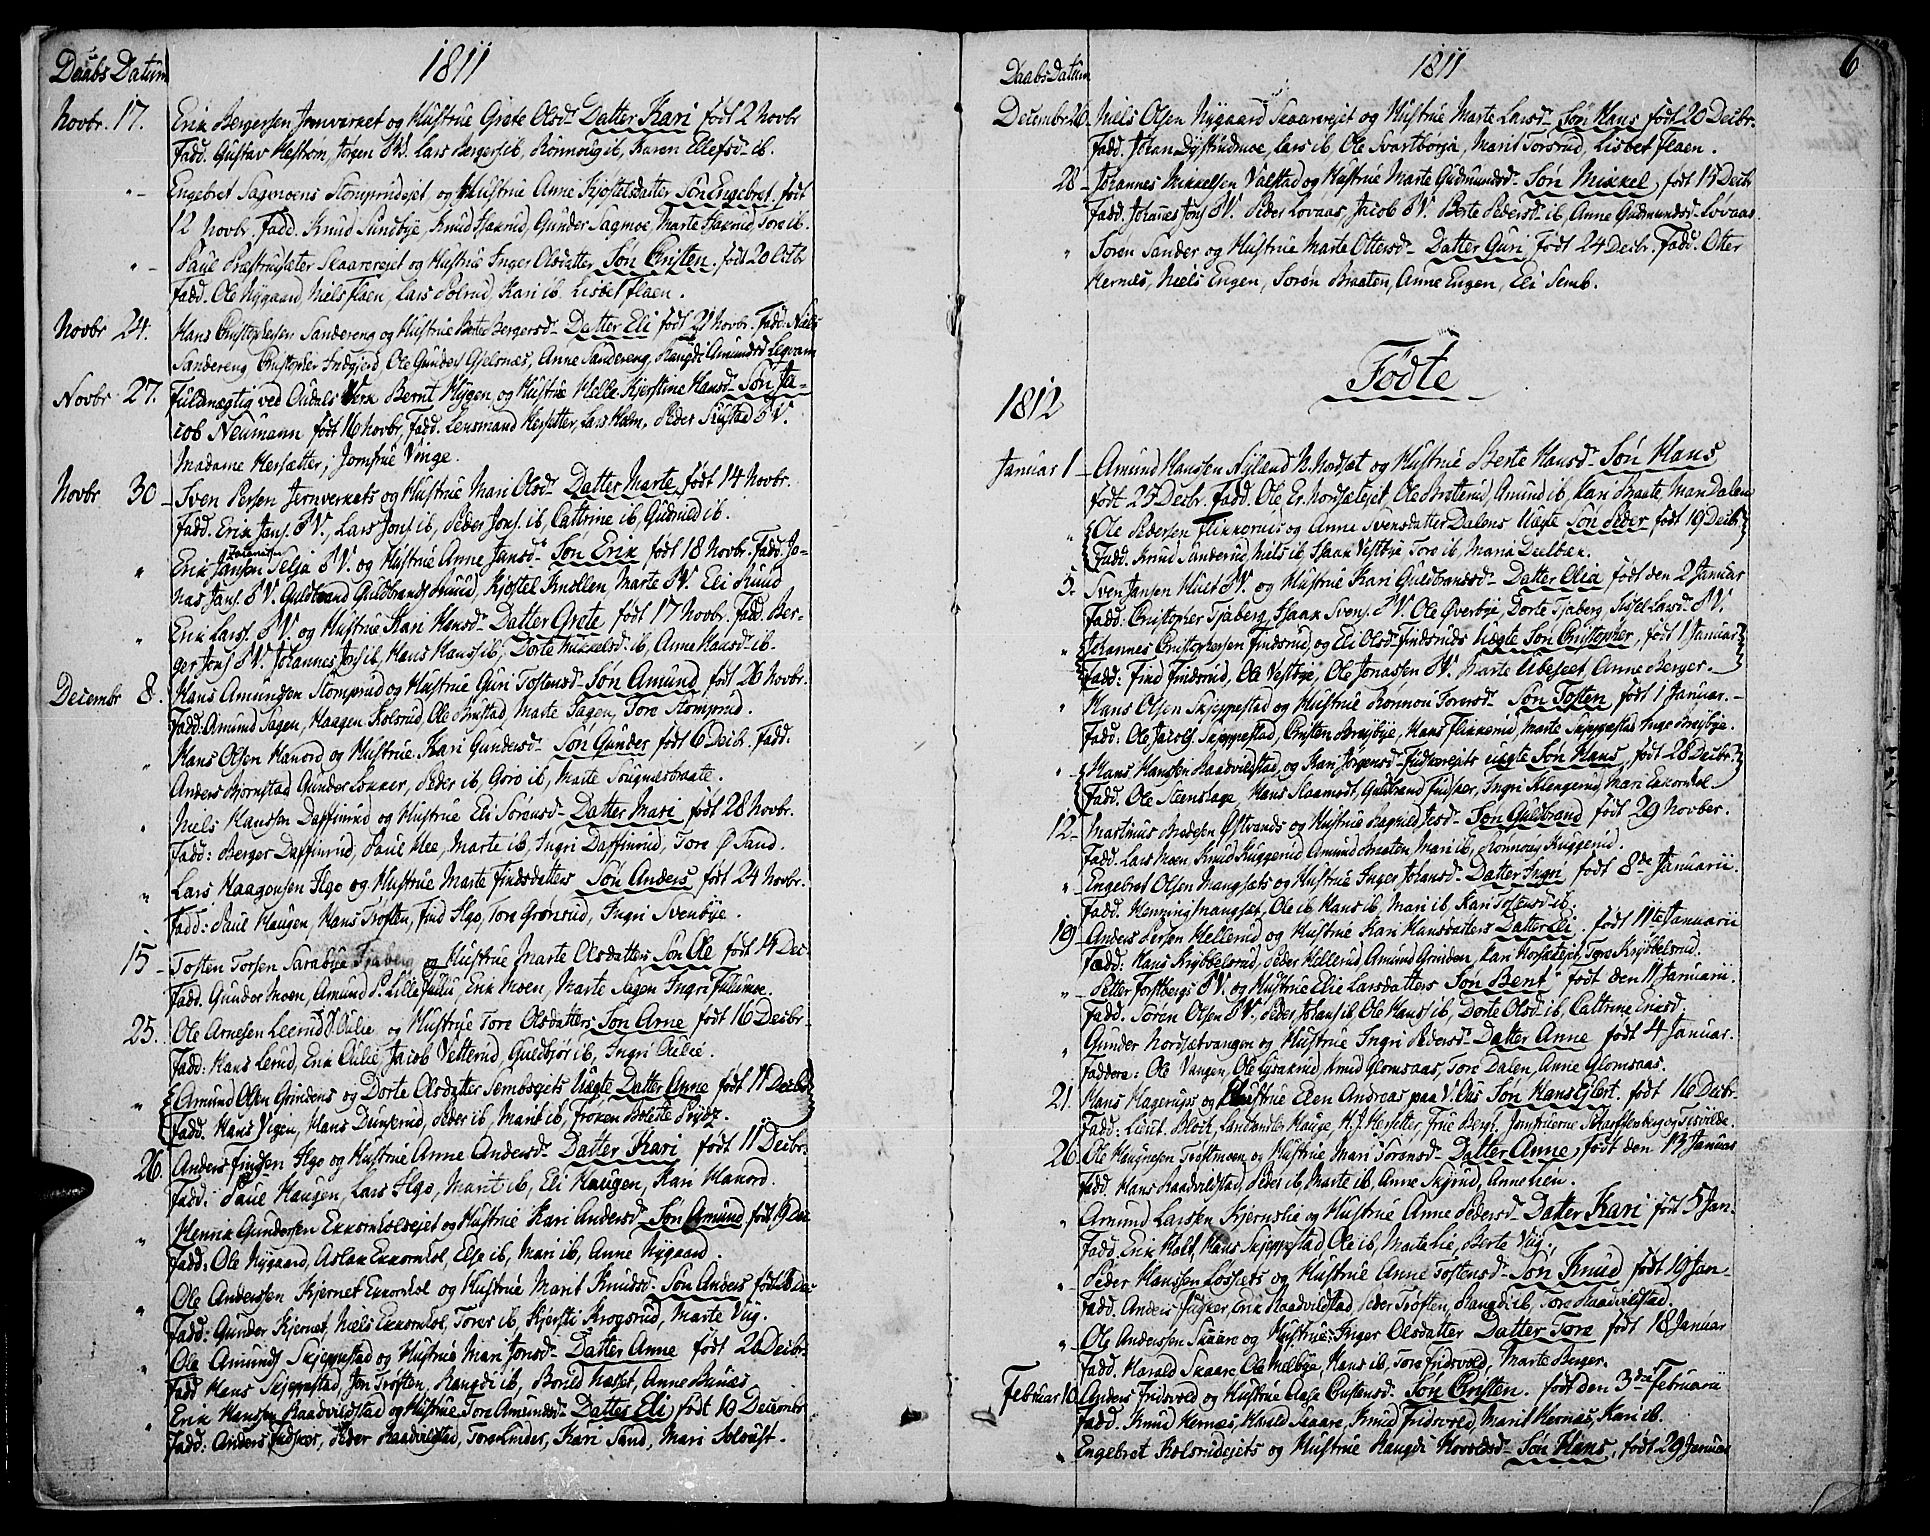 Daabs Datum 1811
Novbr. 17. Erik Bergersen Jernverket og Hustrue Grete Olsd- Datter Kari født 2 Novbr
Fadd. Gustav Hestrom, Jørgen P.V. Lars Bergers ib, Ronnoug ib, Karen Ellefsd- ib.
"- Engebret Sagmoens Stomprudejet og Hustrue Anne Kjostelsdatter Søn Engebret. født
12 Novbr. Fadd. Knud Sundbye, Knud Gunder Sagmoe, Marte Tore ib.
"- Paul Skaarerejet og Hustrue Inger Olsdatter Søn Cristen. født 20 Octbr
Fadd. Ole Nygaard, Niels Flaen, Lars Kari ib. Lisbet Flaen.
Novbr 24. Hans Christophersen Sandereng og Hustrue Berte Bergersd- Datter Eli født 21 Novbr. Fadd. Niels
Sandereng, Christopher Ole Gunders Gjelsnæs, Anne Sandereng, Raugdi Amundsd
Novbr 27. Fuldmægtig ved Oudals Verk Bernt Hygen og Hustrue Helle Kjerstine Hansd- Søn Ja-
cob Neumann født 16 Novbr, Fadd. Lensmand Hersetter, Lars Holm, Peder P.V.
Madame Hersætter, Jomfrue Vinge.
Novbr 30- Sven Persen Jernverkets og Hustrue Mari Olsd- Datter Marte, født 14 Novbr.
Fadd. Erik Jans. P.V., Lars Jons. ib, Peder Jons. ib, Cattrine ib, Gudrued ib.
" Erik Jansen Selja P.V. og Hustrue Anne Jansd- Søn Erik født 18 Novbr. Fadd. Jo-
nas Jans. P.V. Guldbrand Guldbrands Ruud, Kjostel Knollen, Marte P.V. Eli Ruud
" Erik Lars. P.V. og Hustrue Kari Hansd- Datter Grete født 17 Novbr. Fadd. Ber-
ger Jons. P.V. Johannes Jons ib, Hans Hans ib, Dorte Mikkelsd- ib, Anne Hansd- ib.
Decembr 8. Hans Amundsen Stomprud og Hustrue Guri Tostensd- Søn Amund født 26 Novbr.
Fadd. Amund Sagen, Haagen Kolsrud, Ole Marte Sagen, Tore Stomprud.
" Hans Olsen Hanord og Hustrue Kari Gundersd- Søn Gunder født 6 Decbr. Fadd:
Anders Bjornstad, Gunder Peder ib Goro ib, Marte
" Niels Hanssen Daffinrud og Hustrue Eli Sørensd- Datter Mari født 28 Novbr.
Fadd: Berger Daffinrud, Paul Marte ib, Ingri Daffinrud, Tore Ø Sand.
" Lars Haagensen Ilgo og Hustrue Marte Findsdatters Søn Anders født 24 Novbr.
Fadd: Paul Haugen, Hans Trøften, Find Ilgo, Tore Grønrud, Ingri Svenbye.
15- Tosten Torsen Sarabye Tjaberg og Hustrue Marte Olsdatters Søn Ole født 14 Dec-
Fadd. Gunder Moen, Amund Lille Erik Moen, Marte Sagen Ingri
25. Ole Arnesen Leerud Oulie og Hustrue Tore Olsdatters Søn Arne født 16 Decbr-
Fadd: Hans Lerud, Erik Oulie Jacob Vetterud, Guldbjør ib, Ingri Oulie.
" Amund Olsen Grindens og Dorte Olsdatter Semborejets Uægte Datter Anne født 11 Decbr.
Fadd. Hans Vigen, Hans Peder ib, Marit ib, Frøken
26. Anders Findsen Ilgo og Hustrue Anne Andersd- Datter Kari født 11 Decbr.
Fadd: Paul Haugen, Lars Ilgo, Marit ib, Eli Haugen, Kari Hanord.
" Henrik Gundersen Ekkornholsejet og Hustrue Kari Andersd- Søn Amund født 19 Dec
Fadd: Ole Nygaard, Aslak Ekkornhol, Else ib, Mari ib, Anne Nygaard.
" Ole Anderssen Kjernet Ekkornhol og Hustrue Marit Knudsd- Søn Anders født 18 Dec
Fadd: Gunder Kjernet, Niels Ekkornhol, Torer ib, Kjersti Krogsrud, Marte Viig.
" Ole Amunds. Skjeppestad og Hustrue Mari Jonsd- Datter Anne født 20 Decbr.
Fadd Hans Skjeppestad, Jon Trøften, Raugdi ib, Boried Anne
" Erik Hanssen Raadvildstad og Hustrue Tore Amundsd- Datter Eli født 10 December
Fadd: Anders Fudskær, Peder Raadvilstad, Tore Linder, Kari Sand, Mari
Daabs Datum 1811 6
December 26- Niels Olsen Nygaard Skaarerejet og Hustrue Marte Larsd- Søn Hans født 20 Decbr.
Fadd. Johan Dystrudmoe, Lars ib Ole Svartborja, Marit Torsrud, Lisbet Flaen.
28- Johannes Mikkelsen Valstad og Hustrue Marte Gudmundsd- Søn Mikkel, født 15 Decbr
Fadd. Johannes Jons P.V. Peder Lovaas, Jacob P.V. Berte Pedersd- ib, Anne Gudmundsd- Lovaas
" Soren Sander og Hustrue Marte Ottersd- Datter Guri født 24 Decbr. Fadd. Otter
Hernes, Niels Engen, Soren Braaten, Anne Engen, Eli Semb.
Fødte
1812
Januar 1- Amund Hanssen Nylænd N. Nordset og Hustrue Berte Hansd- Søn Hans
født 25 Decbr. Fadd. Ole Er. Nordsetejet, Ole Amund ib, Kari Mari Dalen
" Ole Pedersen Flikkernis og Anne Svensdatter Dalens Uægte Søn Peder, født 19 Decbr
Fadd. Knud Sanderud, Niels ib Isaak Vestbye Tore ib, Maria
5- Sven Jansen P.V. og Hustrue Kari Guldbrandsd- Datter Olia født den 2 Januar
Fadd: Christopher Tjaberg, Isaak Svens. P.V. Ole Overbye, Dorte Tjaberg, Sidsel Larsd- P.V.
" Johannes Christophersen Findsrud, og Eli Olsd- Findsruds Uægte Søn Christopher, født 1 Januar
Fadd: Find Findsrud, Ole Vestbye, Ole Jonassen P.V. Marte Anne Berger.
" Hans Olsen Skjeppestad og Hustrue Ronnou Torersd- Søn Tosten født 1 Januar.-
Fadd: Ole Jacobs. Skjeppestad, Cristen Hans Flikkerud, Marte Skjeppestad, Inger
" Hans Hanssen Raadvildstad, og Kari Jorgensd- Fudskærejets uægte Søn Hans, født 28 Decbr.
Fadd. Ole Steenslage, Hans Staamoet, Guldbrand Fudsker, Ingri Klengerud, Mari Ekkornhol
12- Martinus Østvands og Hustrue Ragnild Søn Guldbrand født 29 November.
Fadd. Lars Moen, Knud Kuggerud, Amund Braaten, Mari ib, Ronnou Kuggerud.
" Engebret Olsen Mangsets og Hustrue Inger Johansd- Datter Ingri født 8de Januarii.
Fadd. Henning Mangset, Ole ib Hans ib, Mari ib Kari Tostensd- ib.
19 Anders Persen Hellerud og Hustrue Kari Hansdatters Datter Eli. født 11te Januarii
Fadd: Hans Knybbelsrud, Peder Hellerud, Amund Grinden, Kari Tore Knybbelsrud.
" Petter Forstbergs P.V. og Hustrue Elie Larsdatters Søn Bent født den 11 Januarii.
Fadd. Soren Olsen P.V. Peder Johans ib Ole Hans. ib, Dorte Olsd- ib, Cattrine Eriksd.
" Gunder Nordsætvangen og Hustrue Ingri Pedersd- Datter Anne født 4 Januar.
Faddere: Ole Vangen, Ole Lysakrud, Knud Glomsaas, Tore Dalen, Anne Glomsaas.
21. Hans Hagerups og Hustrue Elen Andreas paa V. Aas Søn Hans Eilert. født 16 Decbr.
Fadd: Lieut. Bloch, Landhandler Hauge, H.J. Hersetter, Frue Berg, Jomfruerne Scharffenberg og Tisvilde.
26. Ole Haagensen Trøftmoen og Hustrue Mari Sorensd- Datter Anne, født den 13 Januar
Fadd. Hans Raadvildstad, Peder ib, Marte ib, Anne Skjerud, Anne Lien.
" Amund Larssen Kjernslie og Hustrue Anne Pedersd- Datter Kari født 5 Jan-
Fadd. Erik Holt, Hans Skjeppestad, Ole ib, Marte Lie, Berte Viig.
" Peder Hanssen Lossets og Hustrue Anne Tostensd- Søn Knud født 19 Jan-
Fadd. Anders Fusker, Erik Raadvildstad, Peder Trøften, Raugdi ib, Tore Raadvildstad
" Ole Anderssen Skaare og Hustrue Inger Olsdatter Datter Tore født 18 Januar
Fadd. Harald Skaare, Ole Melbye, Hans ib, Tore Fridsvold, Marte Berger.
Februar 10. Anders Fridsvold og Hustrue Olea Cristensd- Søn Cristen. født den 3die Februarii
Fadd. Knud Hernæs, Harald Skaare, Knud Fridsvold, Marit Hernæs, Kari ib.
" Engebret Kolsrudejets og Hustrue Raugdi Søn Hans, født 29 Januar